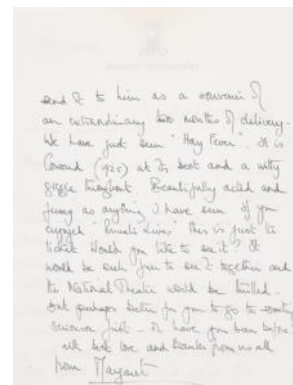 send it to him as a souvenir of
an extraordinary two months of delivery.
We have just seen "Hay Fever". It is
Coward (1925) at its best and a witty
giggle throughout. Beautifully acted and
funny as anything I have seen. If you
enjoyed "Private Lives" this is just the
ticket. Would you like to see it? It
would be such fun to see it together and
the National Theatre would be thrilled -
but perhaps better for you to go to
first - or have you been before?
with best love and thanks from us all
from Margaret